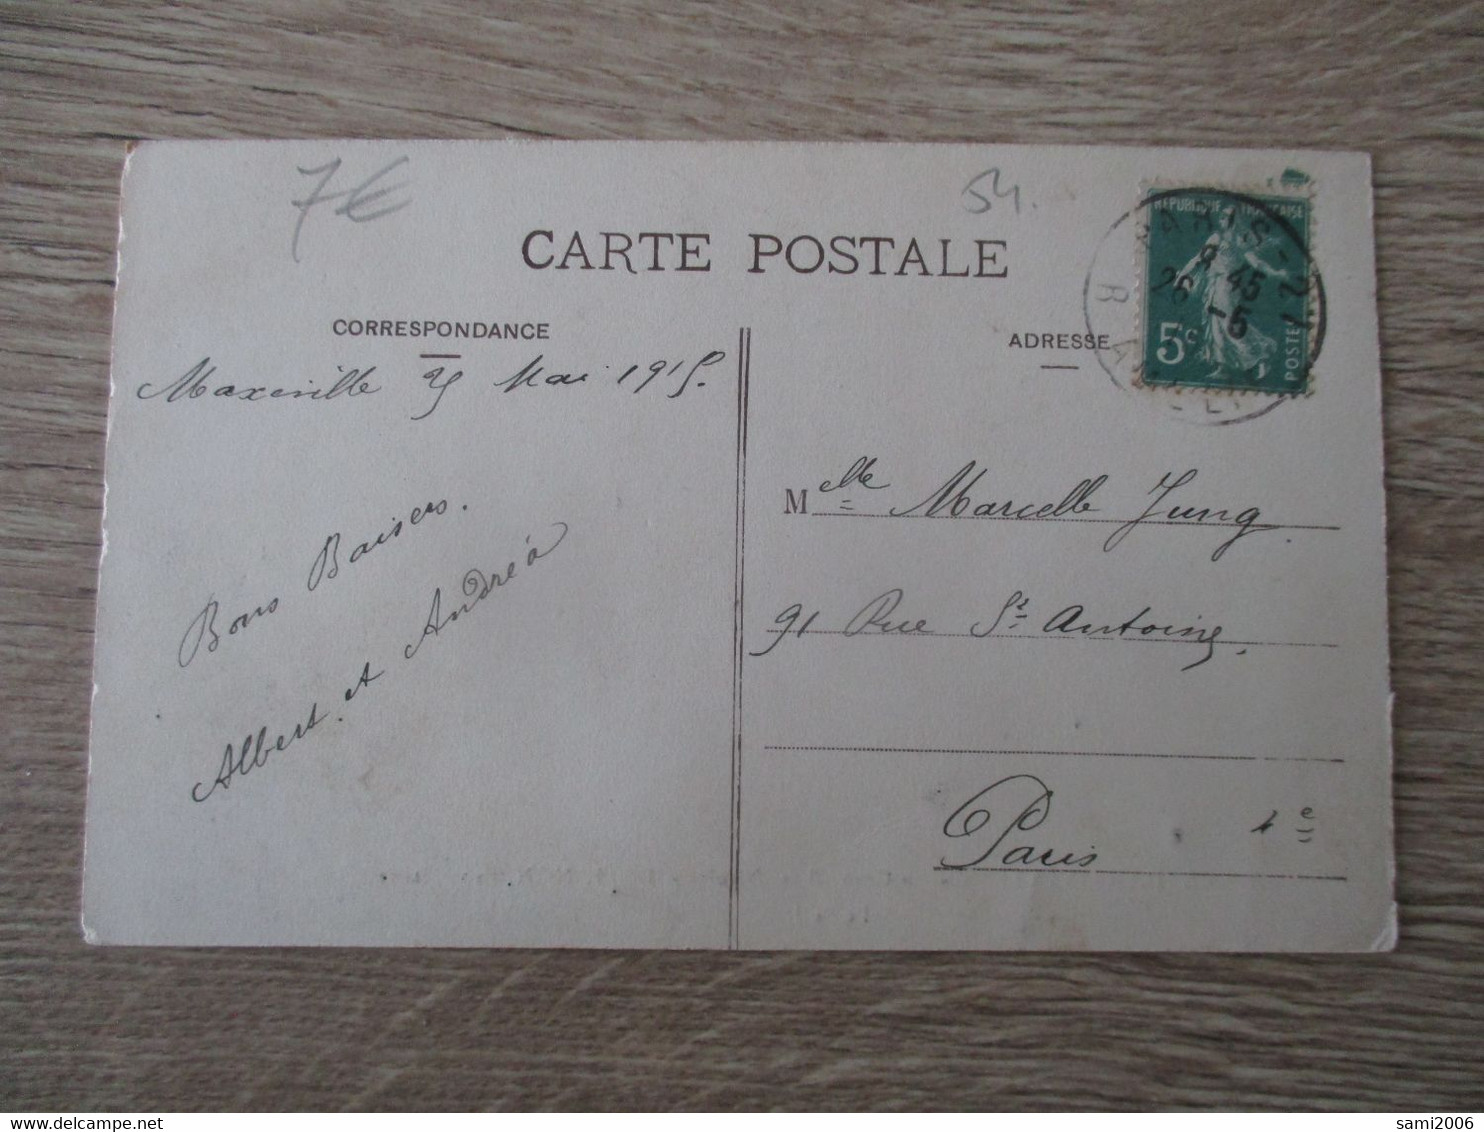 7€
54.
CARTE POSTALE
CORRESPONDANCE
ADRESSE
RÉPUBLIQUE FRANÇAISE
5c
POSTES
PARIS-21
8 45
26 -5
Maxeville 25 Mai 1915.
Bons Baisers.
Albert et Andréa
Melle Marcelle Jung
91 Rue St Antoine,
Paris 4e
sami2006